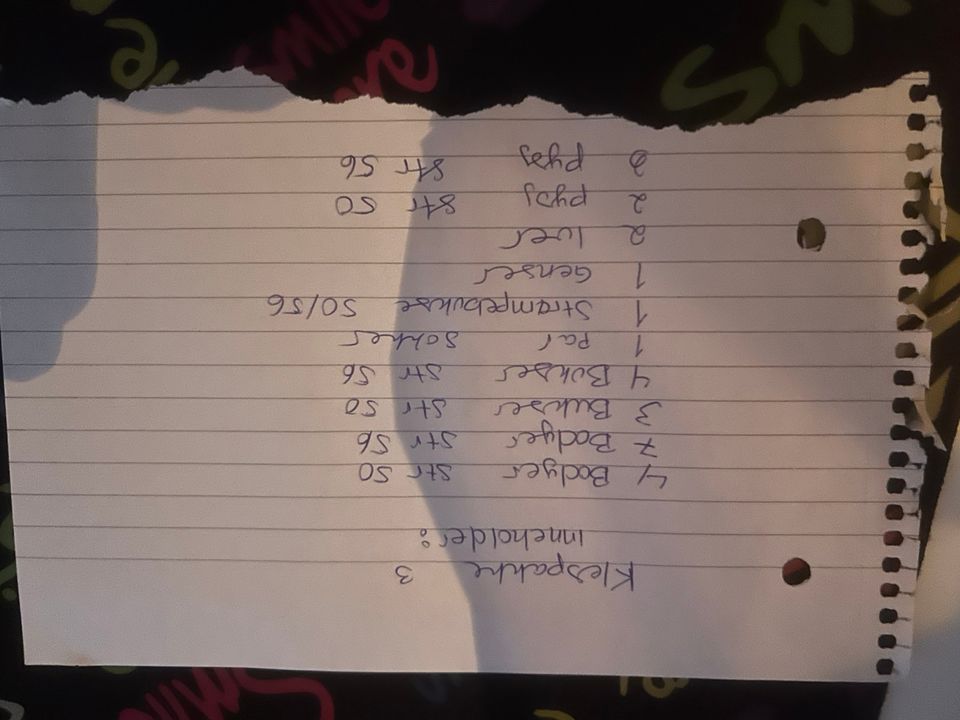 Klespakke 3
inneholder:
4 Bodyer str 50
7 Bodyer str 56
3 Bukser str 50
4 Bukser str 56
1 par sokker
1 Strømpebukse 50/56
1 Genser
2 luer
2 pysj str 50
2 pysj str 56
Smile
Smile